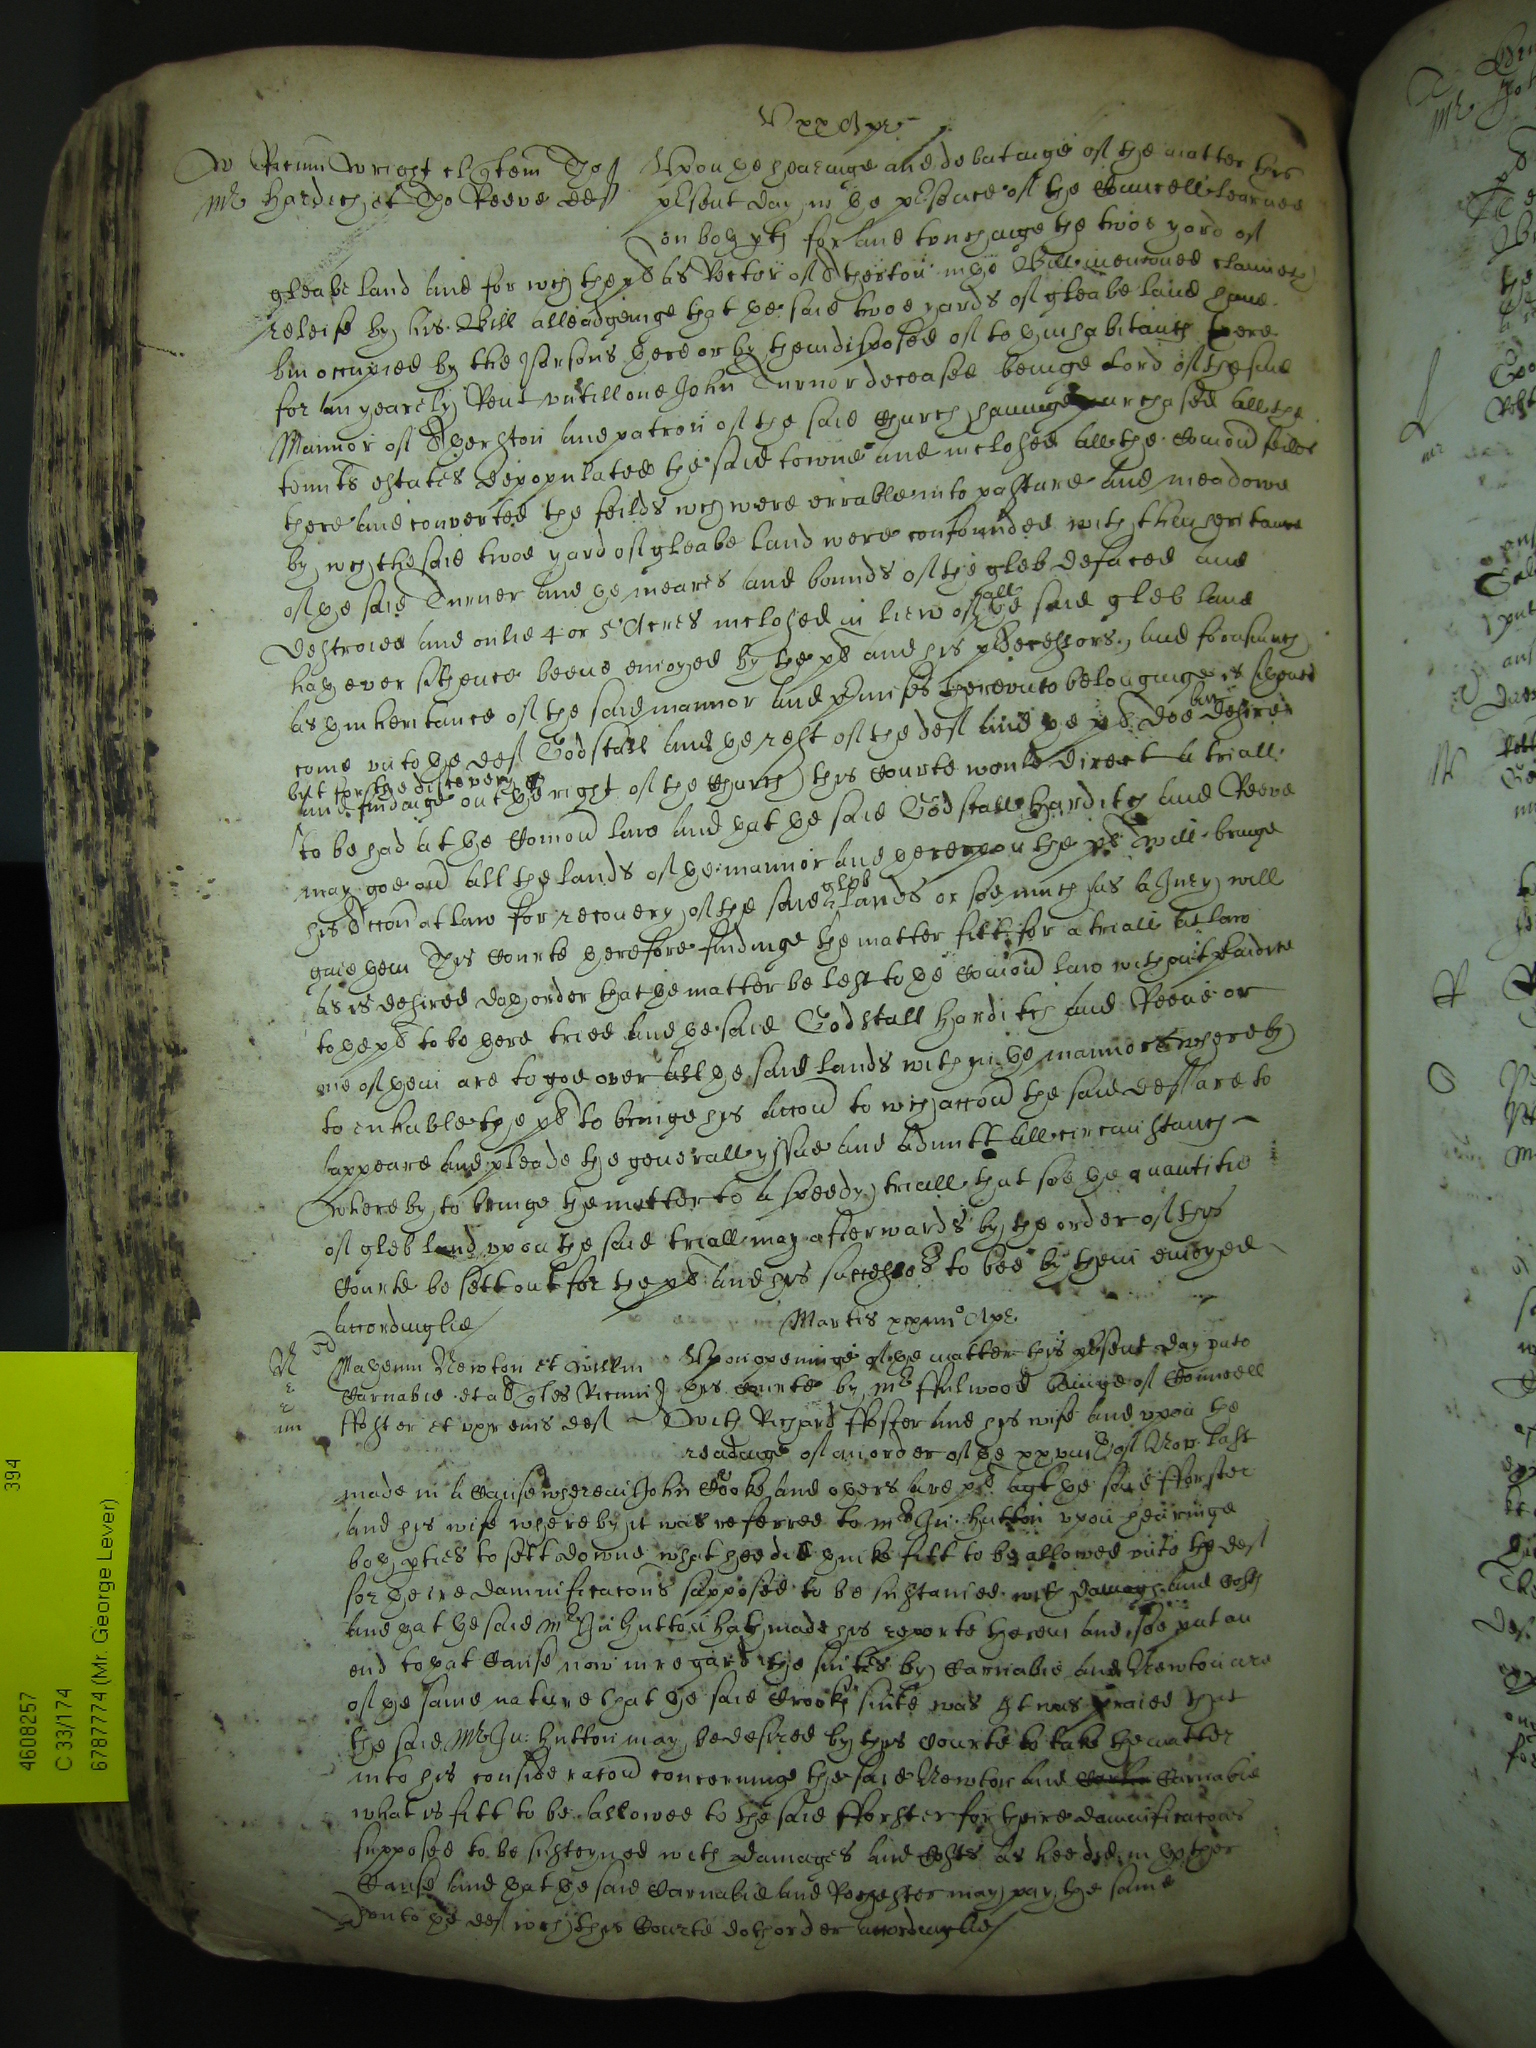 xx Apr
W Ricum Wright clicem Quer
Upon ye hearinge and debatinge of the matter this
mr Harditch et Tho Reeve def
pnt day in ye presence of the Councell learned
on both pties for and touchinge the twoe yard of
gleabe land and for wch the pl as Rector of in ye Bill mencioned claimeth
releife by his Bill alleadginge that ye said twoe yards of gleabe land have
bin occupied by the Persons there or by them disposed of to ye inhabitants there
for an yearely Rent untill one John Turnor deceased beinge Lord of the said
Mannor of and patron of the said Church havinge purchased all the
tennts estates depopulated the said towne and inclosed all the Comon feilds
there and converted the feilds wch were errable into pasture and meadowe
by wch the said twoe yard of gleabe land were confounded with the inheritance
of ye said Turner and ye meares and bounds of the gleb defaced and
destroied and onlie 4 or 5 Acres inclosed in liew of all ye said gleb land
hath ever sithence beene enioyed by the pl and his predecessors, and forasmuch
as ye inheritance of the said mannor and premises thereunto belonginge is
come unto ye def Godstall and ye rest of the def and ye pl doe but desire
but for the discovery
and findinge out ye right of the Church this Courte would direct a triall
to be had at ye Comon law and yat ye said Godstall Harditch and Reeve
may goe on all the lands of ye mannor and thereupon the pl will bringe
his Accon at law for recovery of the said gleb lands or soe much as a Jury will
give him This Courte therefore findinge the matter fitt for a triall at law
as is desired doth order that ye matter be left to ye Comon law without
to ye pl to be there tried and ye said Godstall Harditch and Reeve or
one of them are to goe over all ye said lands within ye mannor whereby
to enhable the pl to bringe his accon to wch accon the said def are to
appeare and pleade the generall yssue and admitt all circumstances
whereby to bringe the matter to a speedy triall that soe ye quantitie
of gleb land upon the said triall may afterwards by the order of this
Courte be sett out for the pl and his successors to bee by them enioyed
accordinglie
Martis xxiiiio Apr
Mathewm Newton et Willm
Upon openinge of ye matter this present day unto
Carnabie et al quer Ricum
this Courte by mr ffulwood beinge of Councell
ffoster et uxor eius def
with Richard ffoster and his wife and upon the
readinge of an order of ye xxviiith of Nov last
made in a Cause wherein John Cooke and others are pl agt ye said fforster
and his wife whereby it was referred to mr Ju: Hutton upon hearinge
both pties to sett downe what hee did thinke fitt to be allowed unto the def
for theire damnificacons supposed to be sustained with damags and Costs
and yat ye said mr Ju Hutton hath made his reporte therein and soe put an
end to yat Cause now in regard the suites by Carnabie and Newton are
of ye same nature that ye said Crooks suite was It was praied that
the said Mr Ju: Hutton may be desired by this Courte to take the matter
into his consideracon concerninge the said Newton and Carnabie
what is fitt to be allowed to the said fforster for theire damnificacons
supposed to be susteyned with damages and Costs as hee did in ye other
Cause and yat ye said Carnabie and may pay the same
unto ye def wch this Courte doth order accordinglie
4608257 394
C 33/174
6787774 (Mr. George Lever)